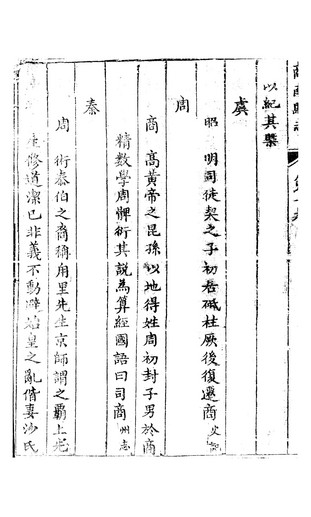 以紀其槩
虞
昭明司徒契之子初居砥柱厥後復遷商史記
周
商高黃帝之昆孫以地得姓周初封子男於商
精數學周髀術其說為算經國語曰司商州志
秦
周術泰伯之裔稱用里先生京師謂之霸上先
生修道潔己非義不動避始皇之亂偕妻沙氏